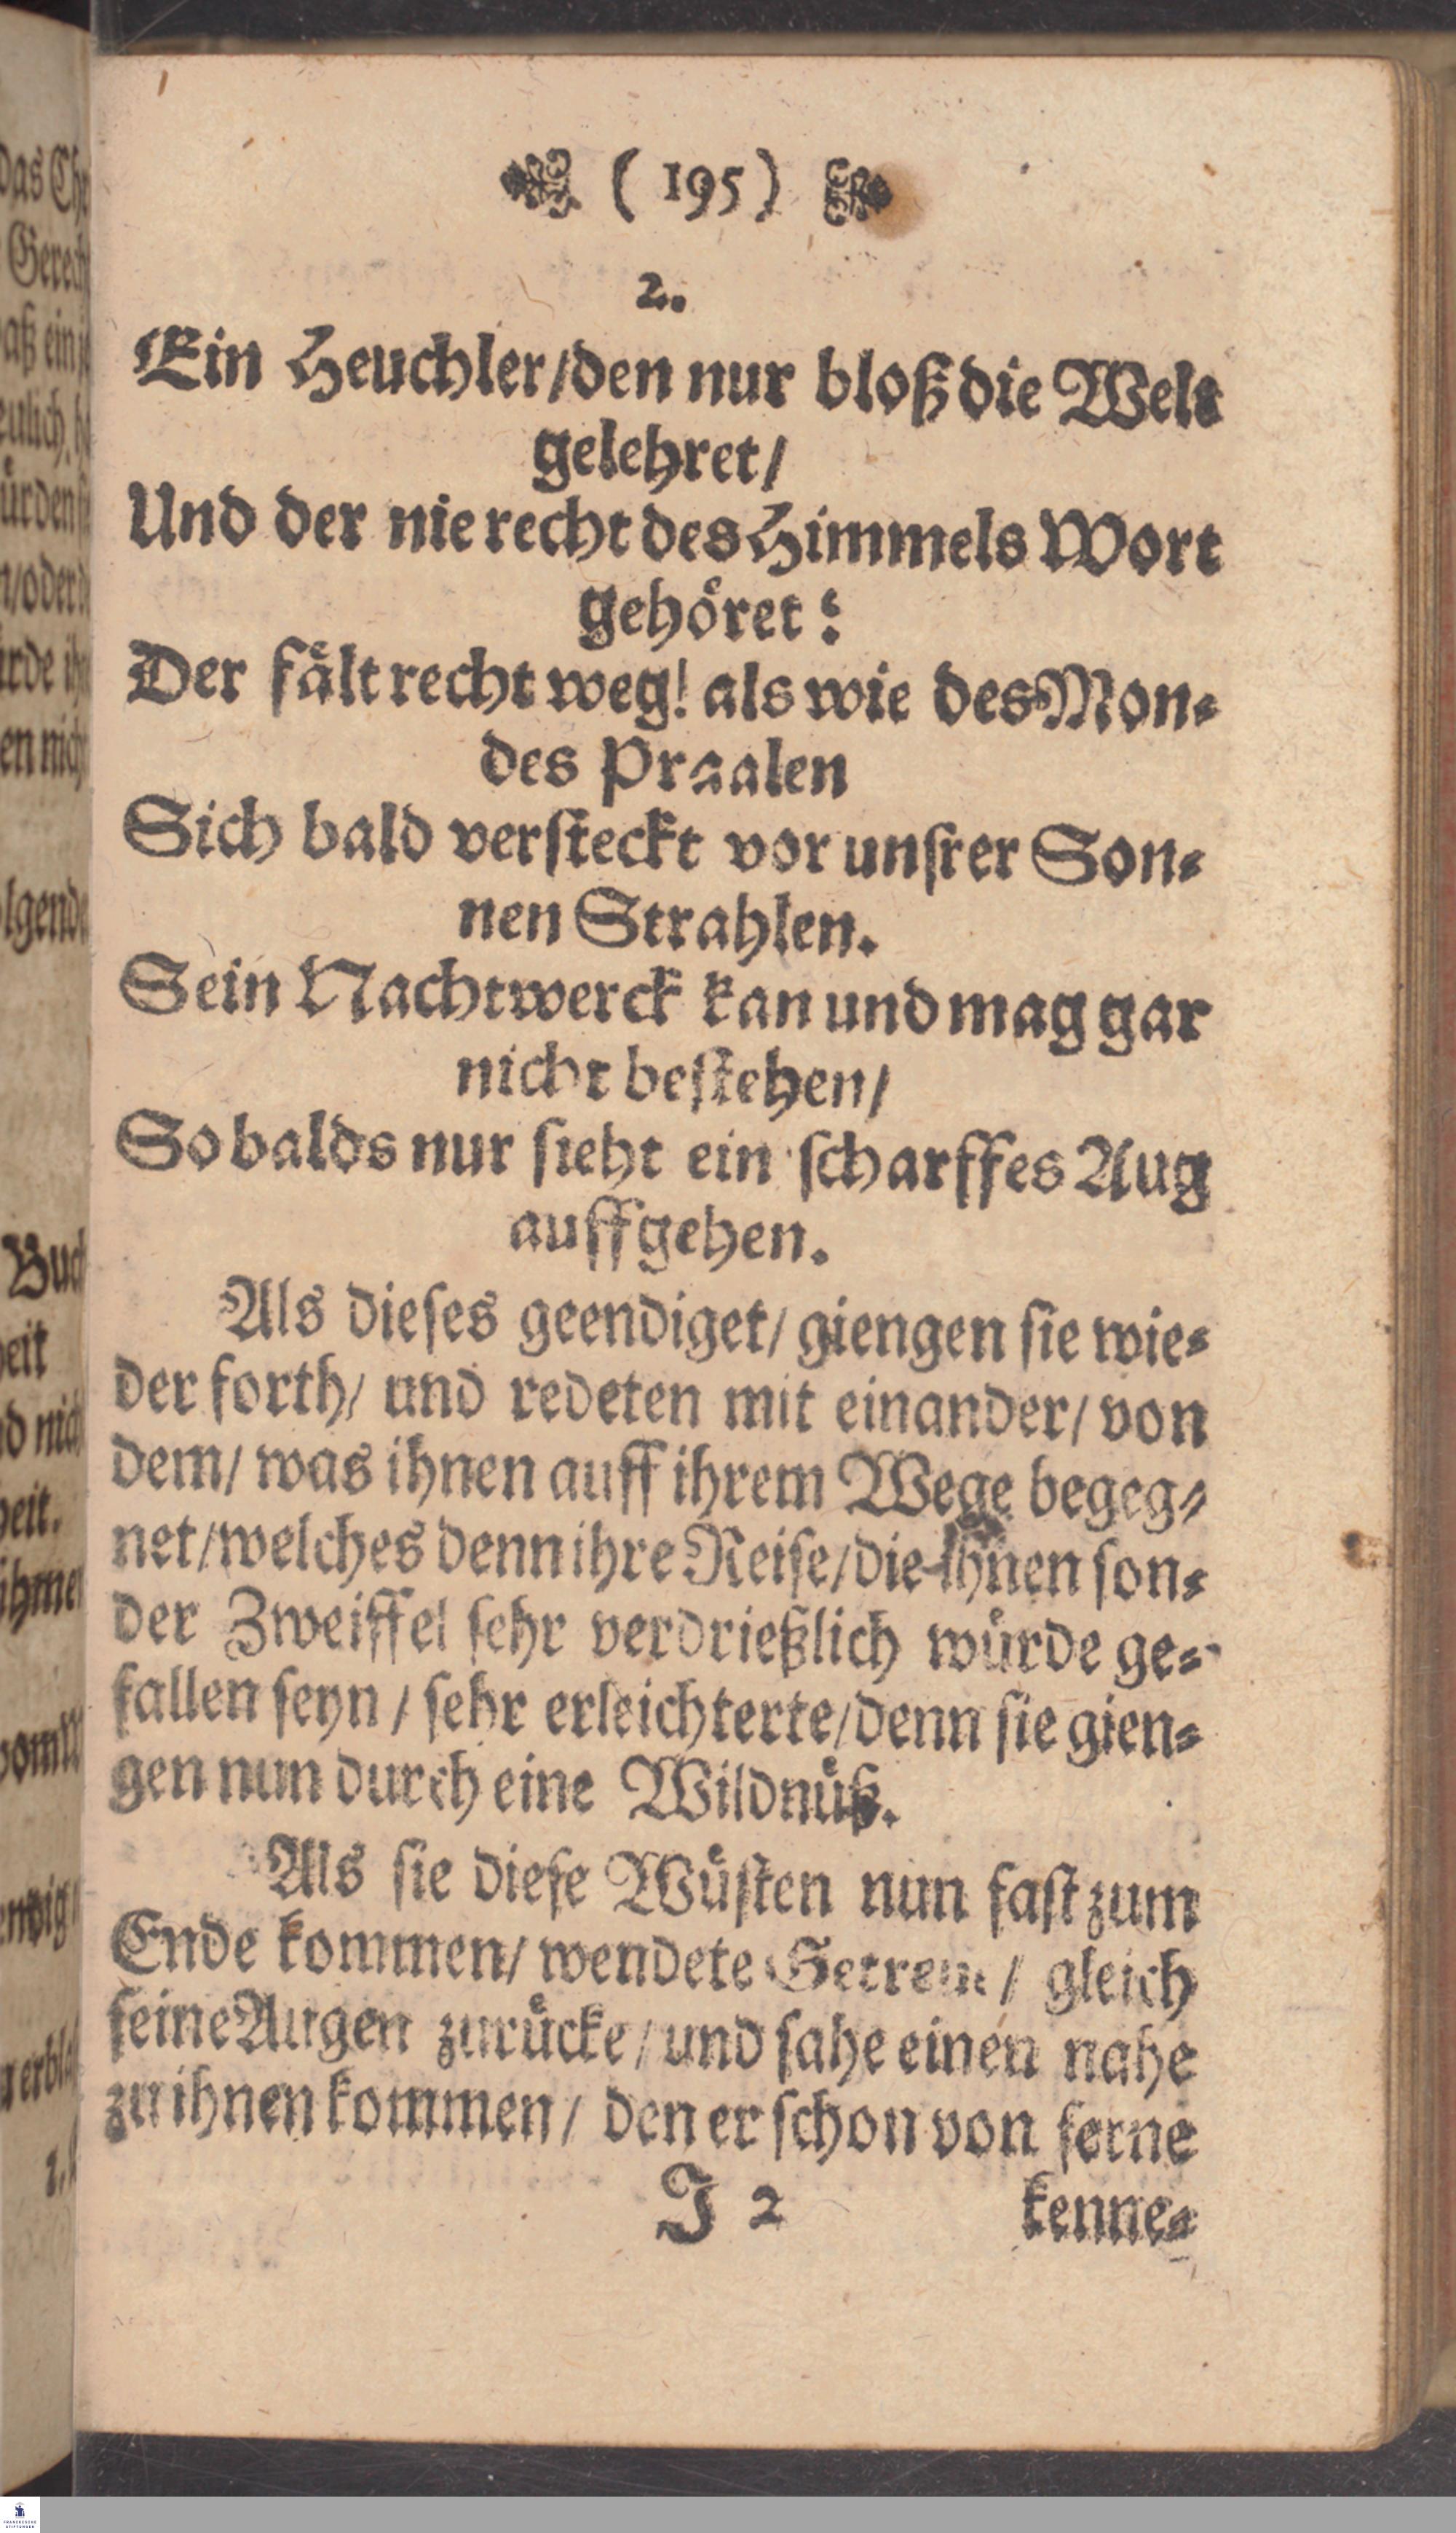 ( 195 )
2.
Ein Heuchler/den nur bloß die Welt
gelehret/
Und der nie recht des Himmels Wort
gehoͤret:
Der faͤlt recht weg! als wie des Mon⸗
des Praalen
Sich bald verſteckt vor unſrer Son⸗
nen Strahlen.
Sein Nachtwerck kan und mag gar
nicht beſtehen/
So balds nur ſieht ein ſcharffes Aug
auffgehen.
Als dieſes geendiget/ giengen ſie wie⸗
der forth/ und redeten mit einander/ von
dem/ was ihnen auff ihrem Wege begeg⸗
net/welches denn ihre Reiſe/die ihnen ſon⸗
der Zweiffel ſehr verdrießlich wuͤrde ge⸗
fallen ſeyn / ſehr erleichterte/denn ſie gien⸗
gen nun durch eine Wildnuͤß.
Als ſie dieſe Wuͤſten nun faſt zum
Ende kommen/ wendete / gleich
ſeine Augen zuruͤcke / und ſahe einen nahe
zu ihnen kommen/ den er ſchon von ferne
J 2 kenne⸗